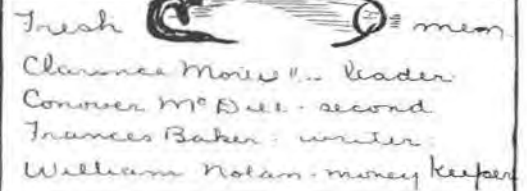 Fresh men
Clarence leader
Conover McDill - second
Frances Baker - writer
William Nolan - money keeper